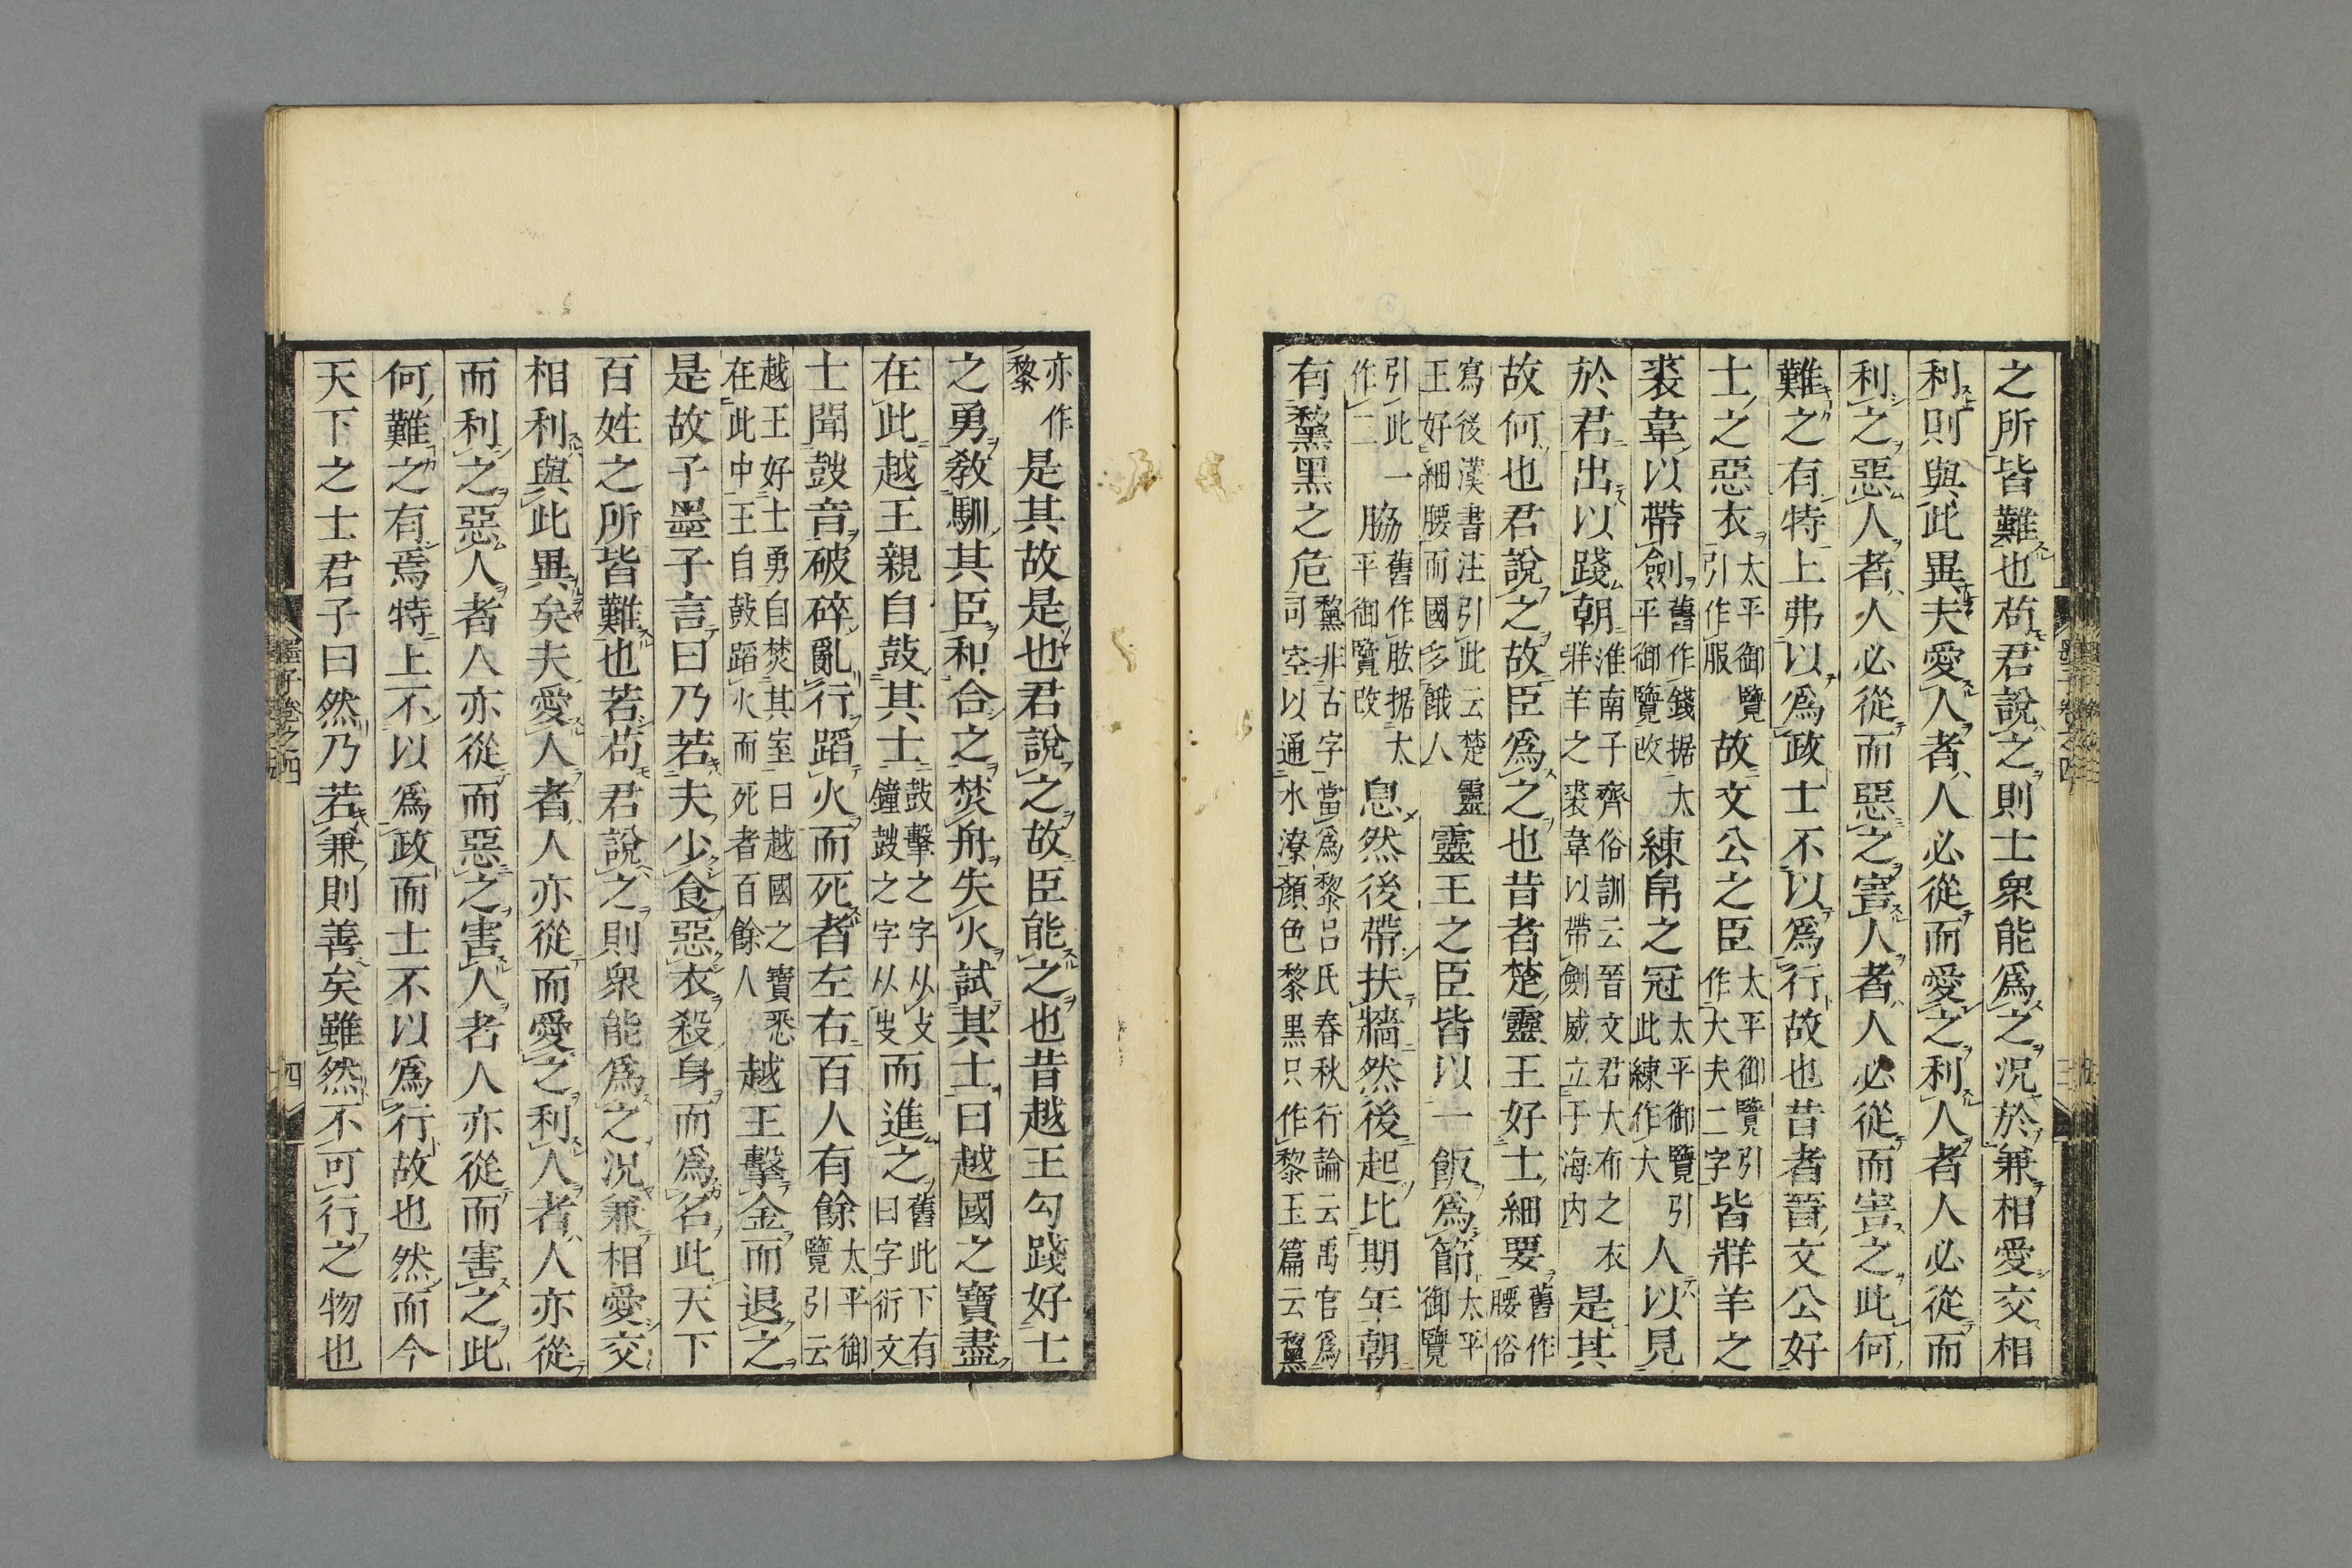 之所皆難也苟君說之則士衆能爲之況於兼相愛交相
利則與此異夫愛人者人必從而愛之利人者人必從而
利之惡人者人必從而惡之害人者人必從而害之此何
難之有特上弗以爲政士不以爲行故也昔者晉文公好
士之惡衣太平御覽引作服故文公之臣太平御覽引作大夫二字皆牂羊之
裘韋以帶劍舊作錢据太平御覽改練帛之冠太平御覽引此練作大人以見
於君出以踐朝淮南子齊俗訓云晉文君大布之衣牂羊之裘韋以帶劍威立于海內是其
故何也君說之故臣爲之也昔者楚靈王好士細要舊作腰俗
寫後漢書注引此云楚靈王好細腰而國多餓人靈王之臣皆以一飯爲節太平御覽
引此一作二脇舊作肱据太平御覽改息然後帶扶牆然後起比期年朝
有黧黑之危黧非古字當爲黎呂氏春秋行論云禹官爲司空以通水潦顏色黎黑只作黎玉篇云黧
亦作黎是其故是也君說之故臣能之也昔越王勾踐好士
之勇敎馴其臣和合之焚舟失火試其士曰越國之寶盡
在此越王親自鼓其士鼓擊之字从攴鐘鼓之字从㞢而進之舊此下有曰字衍文
士聞鼓音破碎亂行蹈火而死者左右百人有餘太平御覽引云
越王好士勇自焚其室曰越國之寶悉在此中王自鼓蹈火而死者百餘人越王擊金而退之
是故子墨子言曰乃若夫少食惡衣殺身而爲名此天下
百姓之所皆難也若苟君說之則衆能爲之況兼相愛交
相利與此異矣夫愛人者人亦從而愛之利人者人亦從
而利之惡人者人亦從而惡之害人者人亦從而害之此
何難之有焉特上不以爲政而士不以爲行故也然而今
天下之士君子曰然乃若兼則善矣雖然不可行之物也
墨子卷之四
四